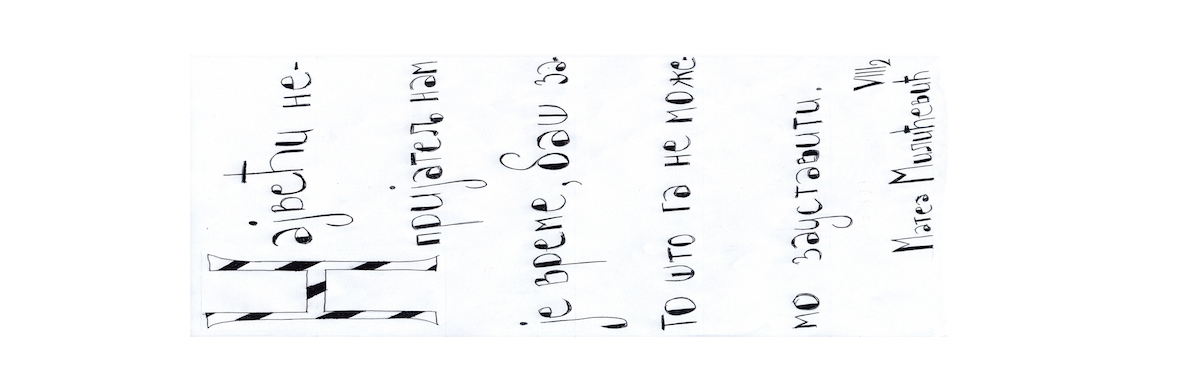 Највећи не-
пријатељ нам
је време, баш за-
то што га не може-
мо зауставити.
VIII2
Матеа Милићевић